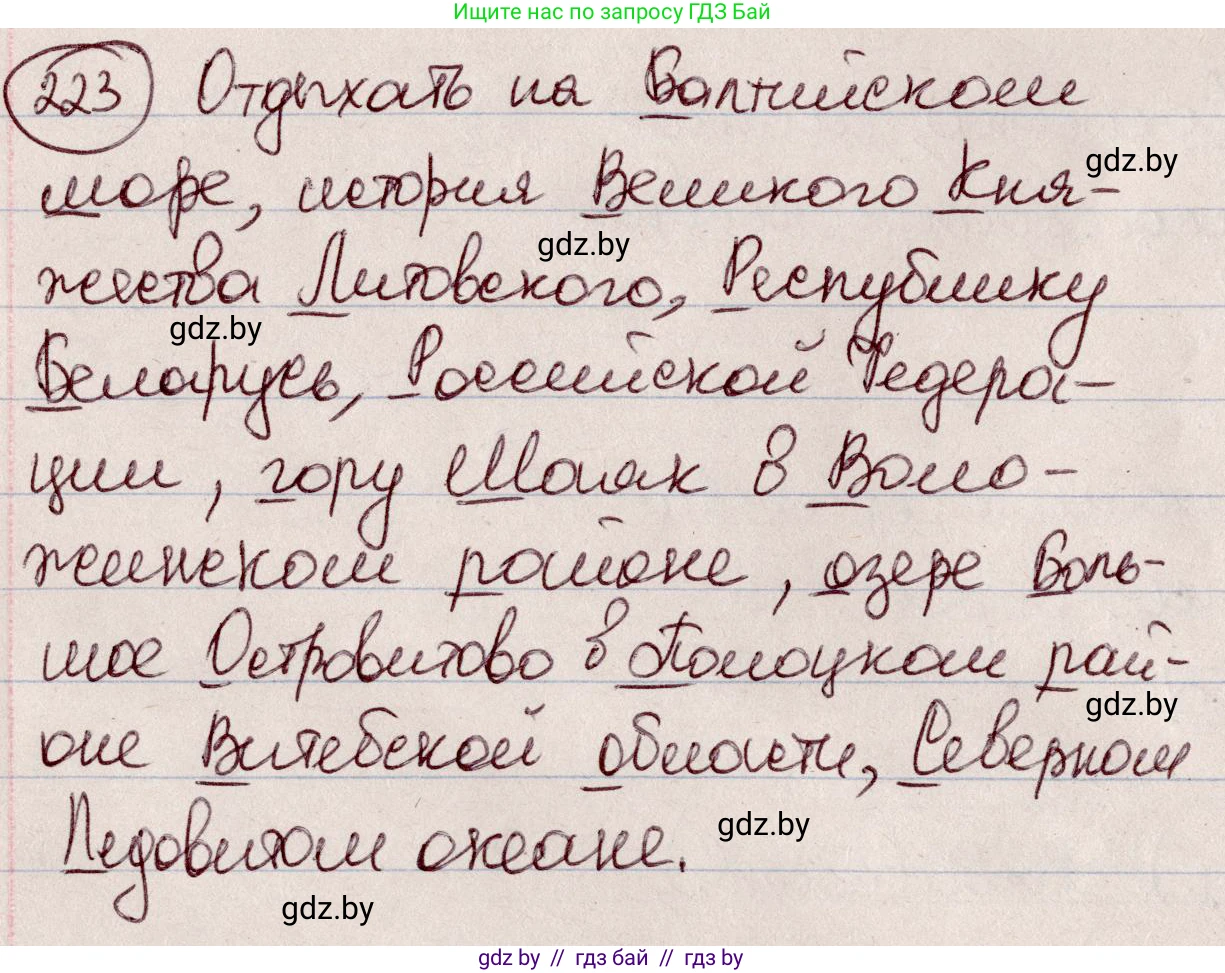 Ищите нас по запросу ГДЗ Бай
223 Отдыхать на Балтийском
море, история Великого Кня-
gdz.by
жества Литовского, Республику
gdz.by
gdz.by
Беларусь, Российской Федера-
ции, гору Маяк в Воло-
жинском районе, озере Боль-
шое Островитово в Полоцком рай-
gdz.by
оне Витебской области, Северном
Ледовитом океане.
gdz.by
gdz.by
gdz by // гдз бай // гдз by